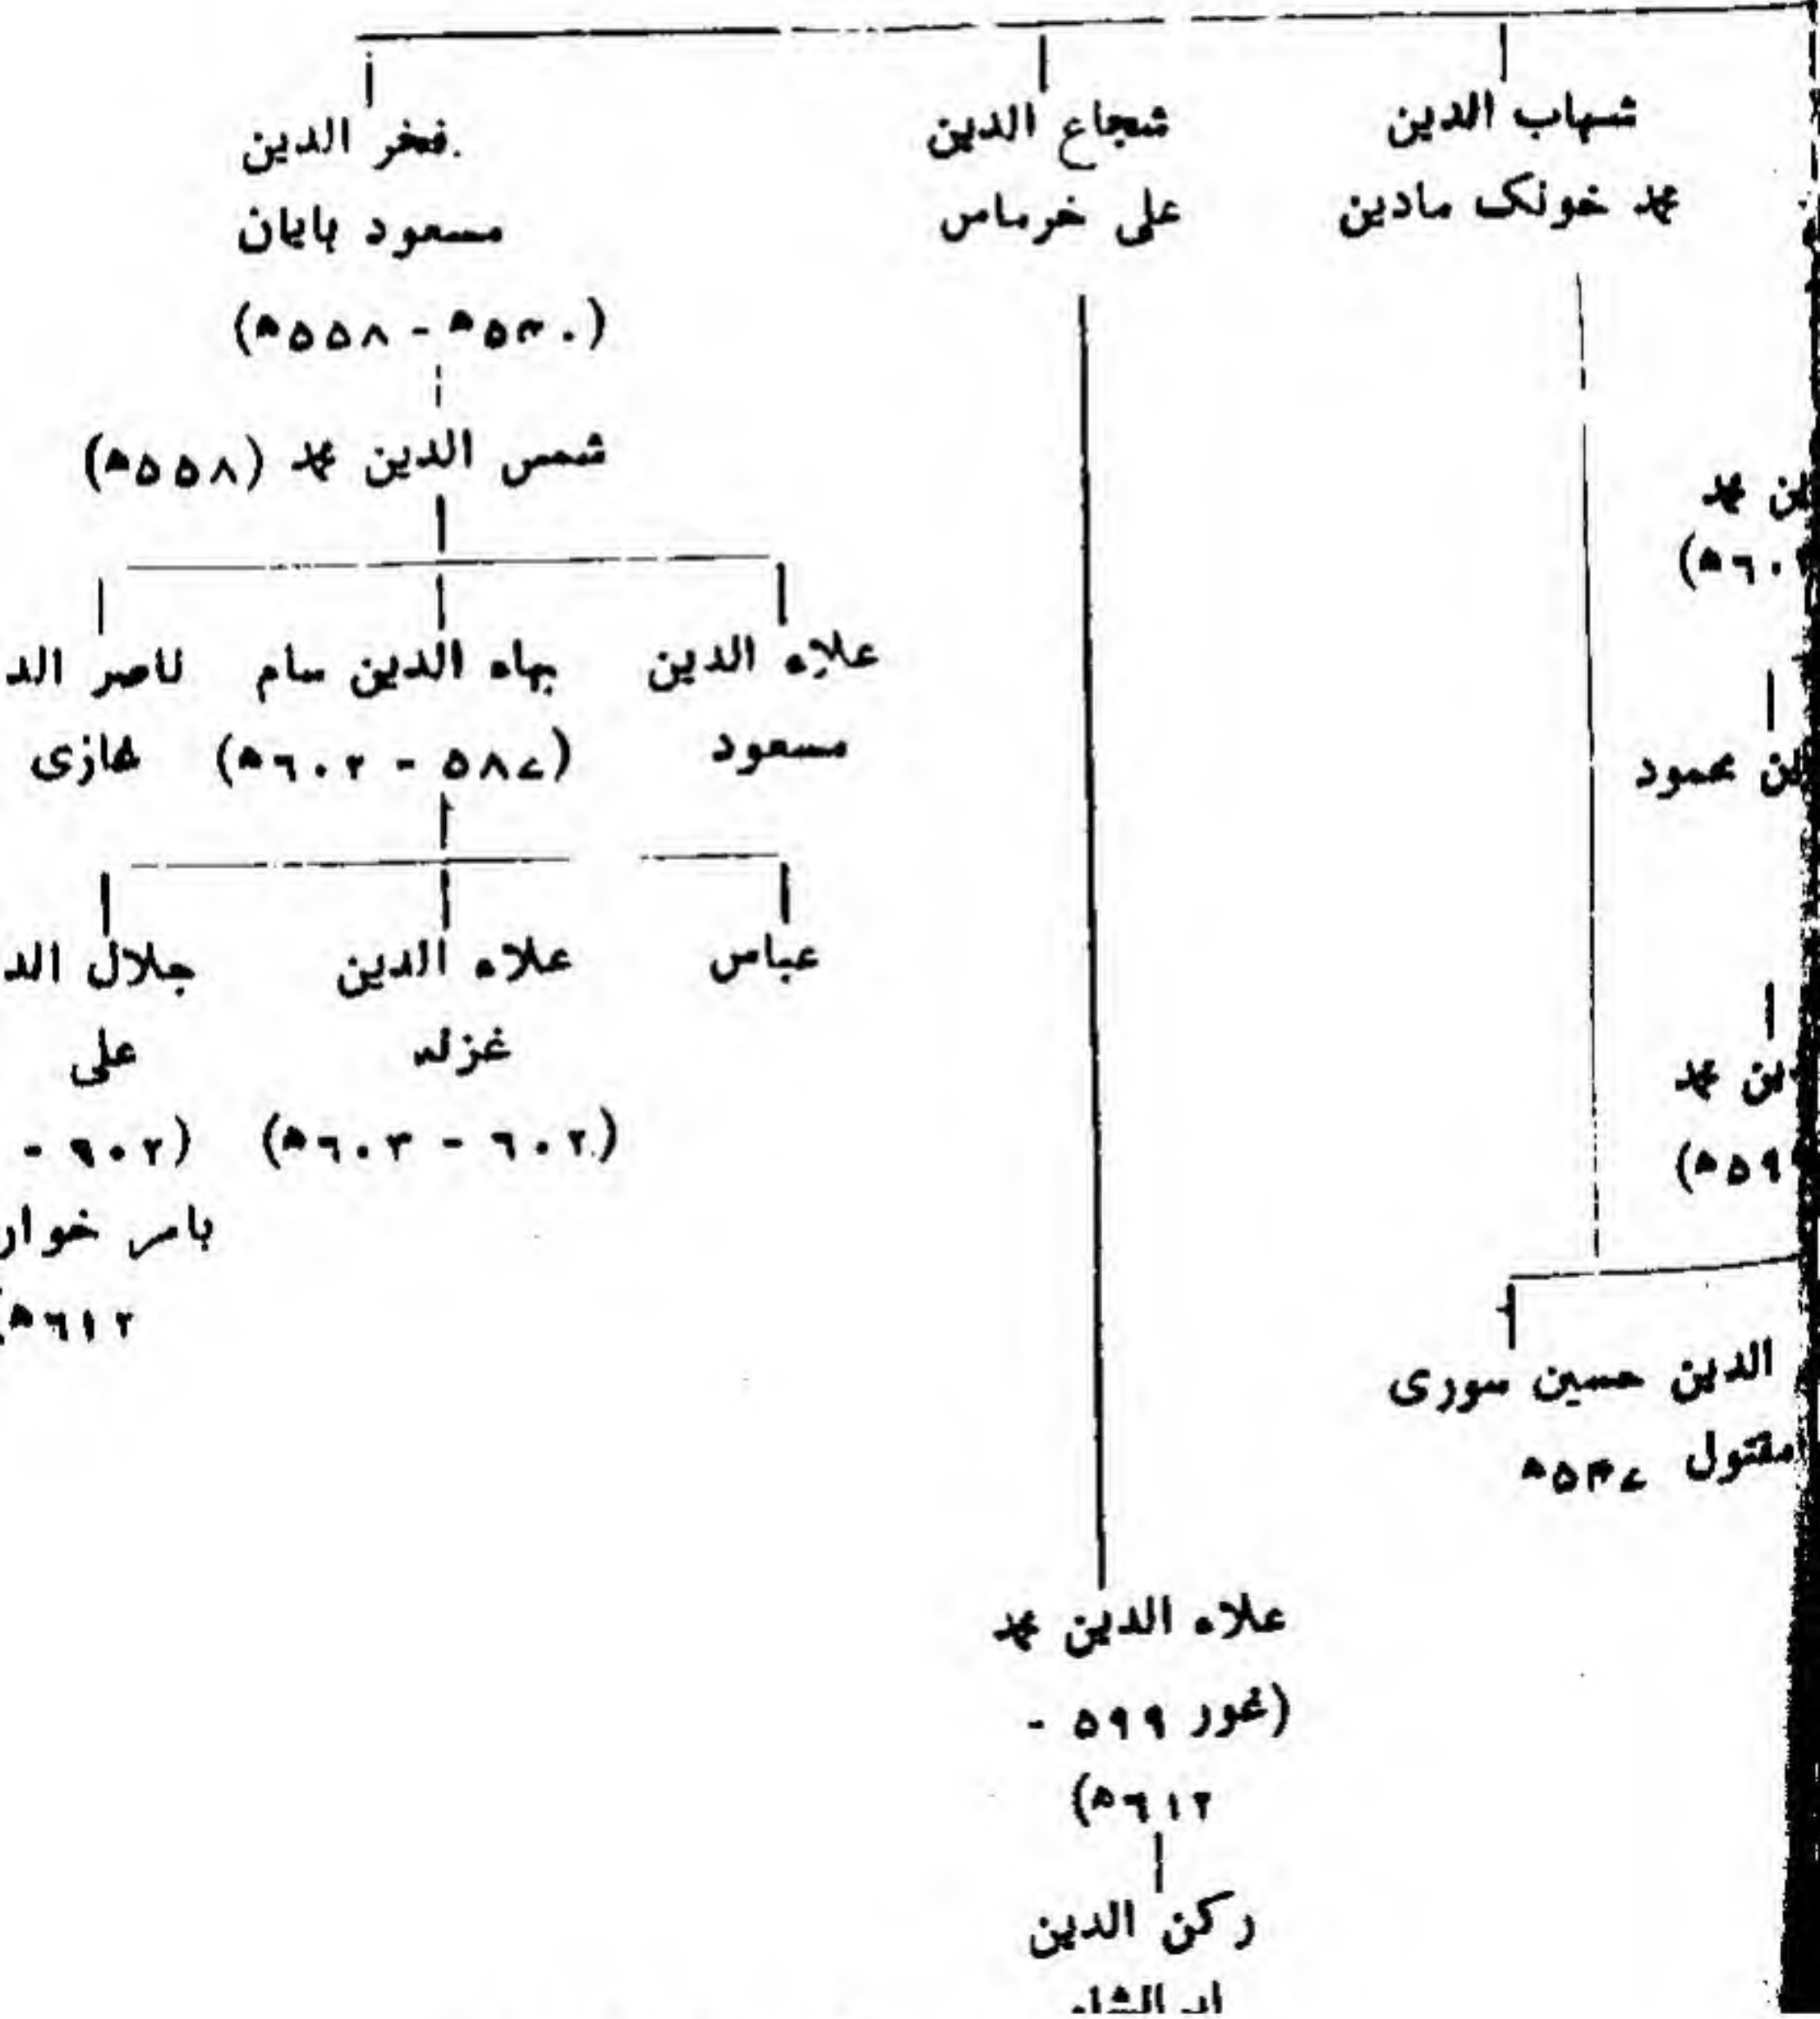 شهاب الدین
محمد خولک مادین
شجاع الدین
علی خرماس
فخر الدین
مسعود بایان
(۵۴۰ھ - ۵۵۸ھ)
شمس الدین محمد (۵۵۸ھ)
علاء الدین
مسعود
بہاء الدین سام
(۵۸۷ - ۶۰۲ھ)
ناصر الد
غازی
عباس
علاء الدین
غزنہ
(۶۰۲ - ۶۰۳ھ)
جلال الد
علی
(۶۰۲ -
بامر خوار
۶۱۲ھ)
محمد
محمود
محمد
الدین حسین سوری
مقتول ۵۴۷ھ
علاء الدین محمد
(غور ۵۹۹ -
۶۱۲ھ)
رکن الدین